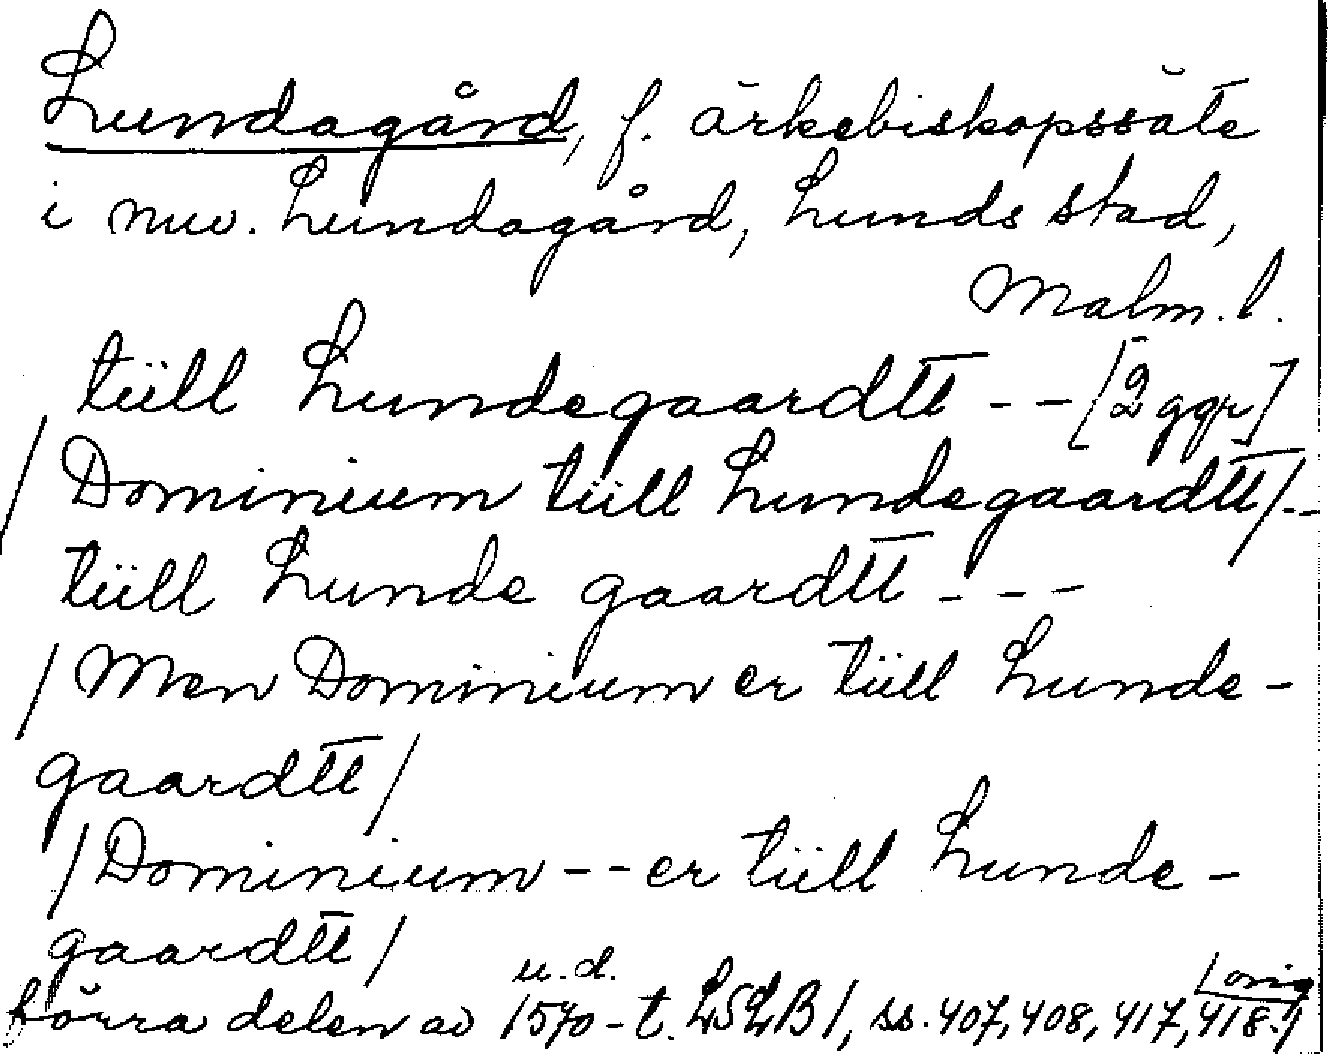 Lundagård, f. ärkebiskopssäte
i nuv. Lundagård, Lunds stad,
Malm. l.
tiill Lundegaardtt -- [2 ggr]
/Dominium tiill Lundegaardtt/--
tiill Lunde gaardtt ---
/Men Dominium er tiill Lunde-
gaardtt/
/Dominium -- er tiill Lunde-
gaardtt/
u.d.
förra delen av 1570-t. LSLB 1, ss. 407, 408, 417, 418.